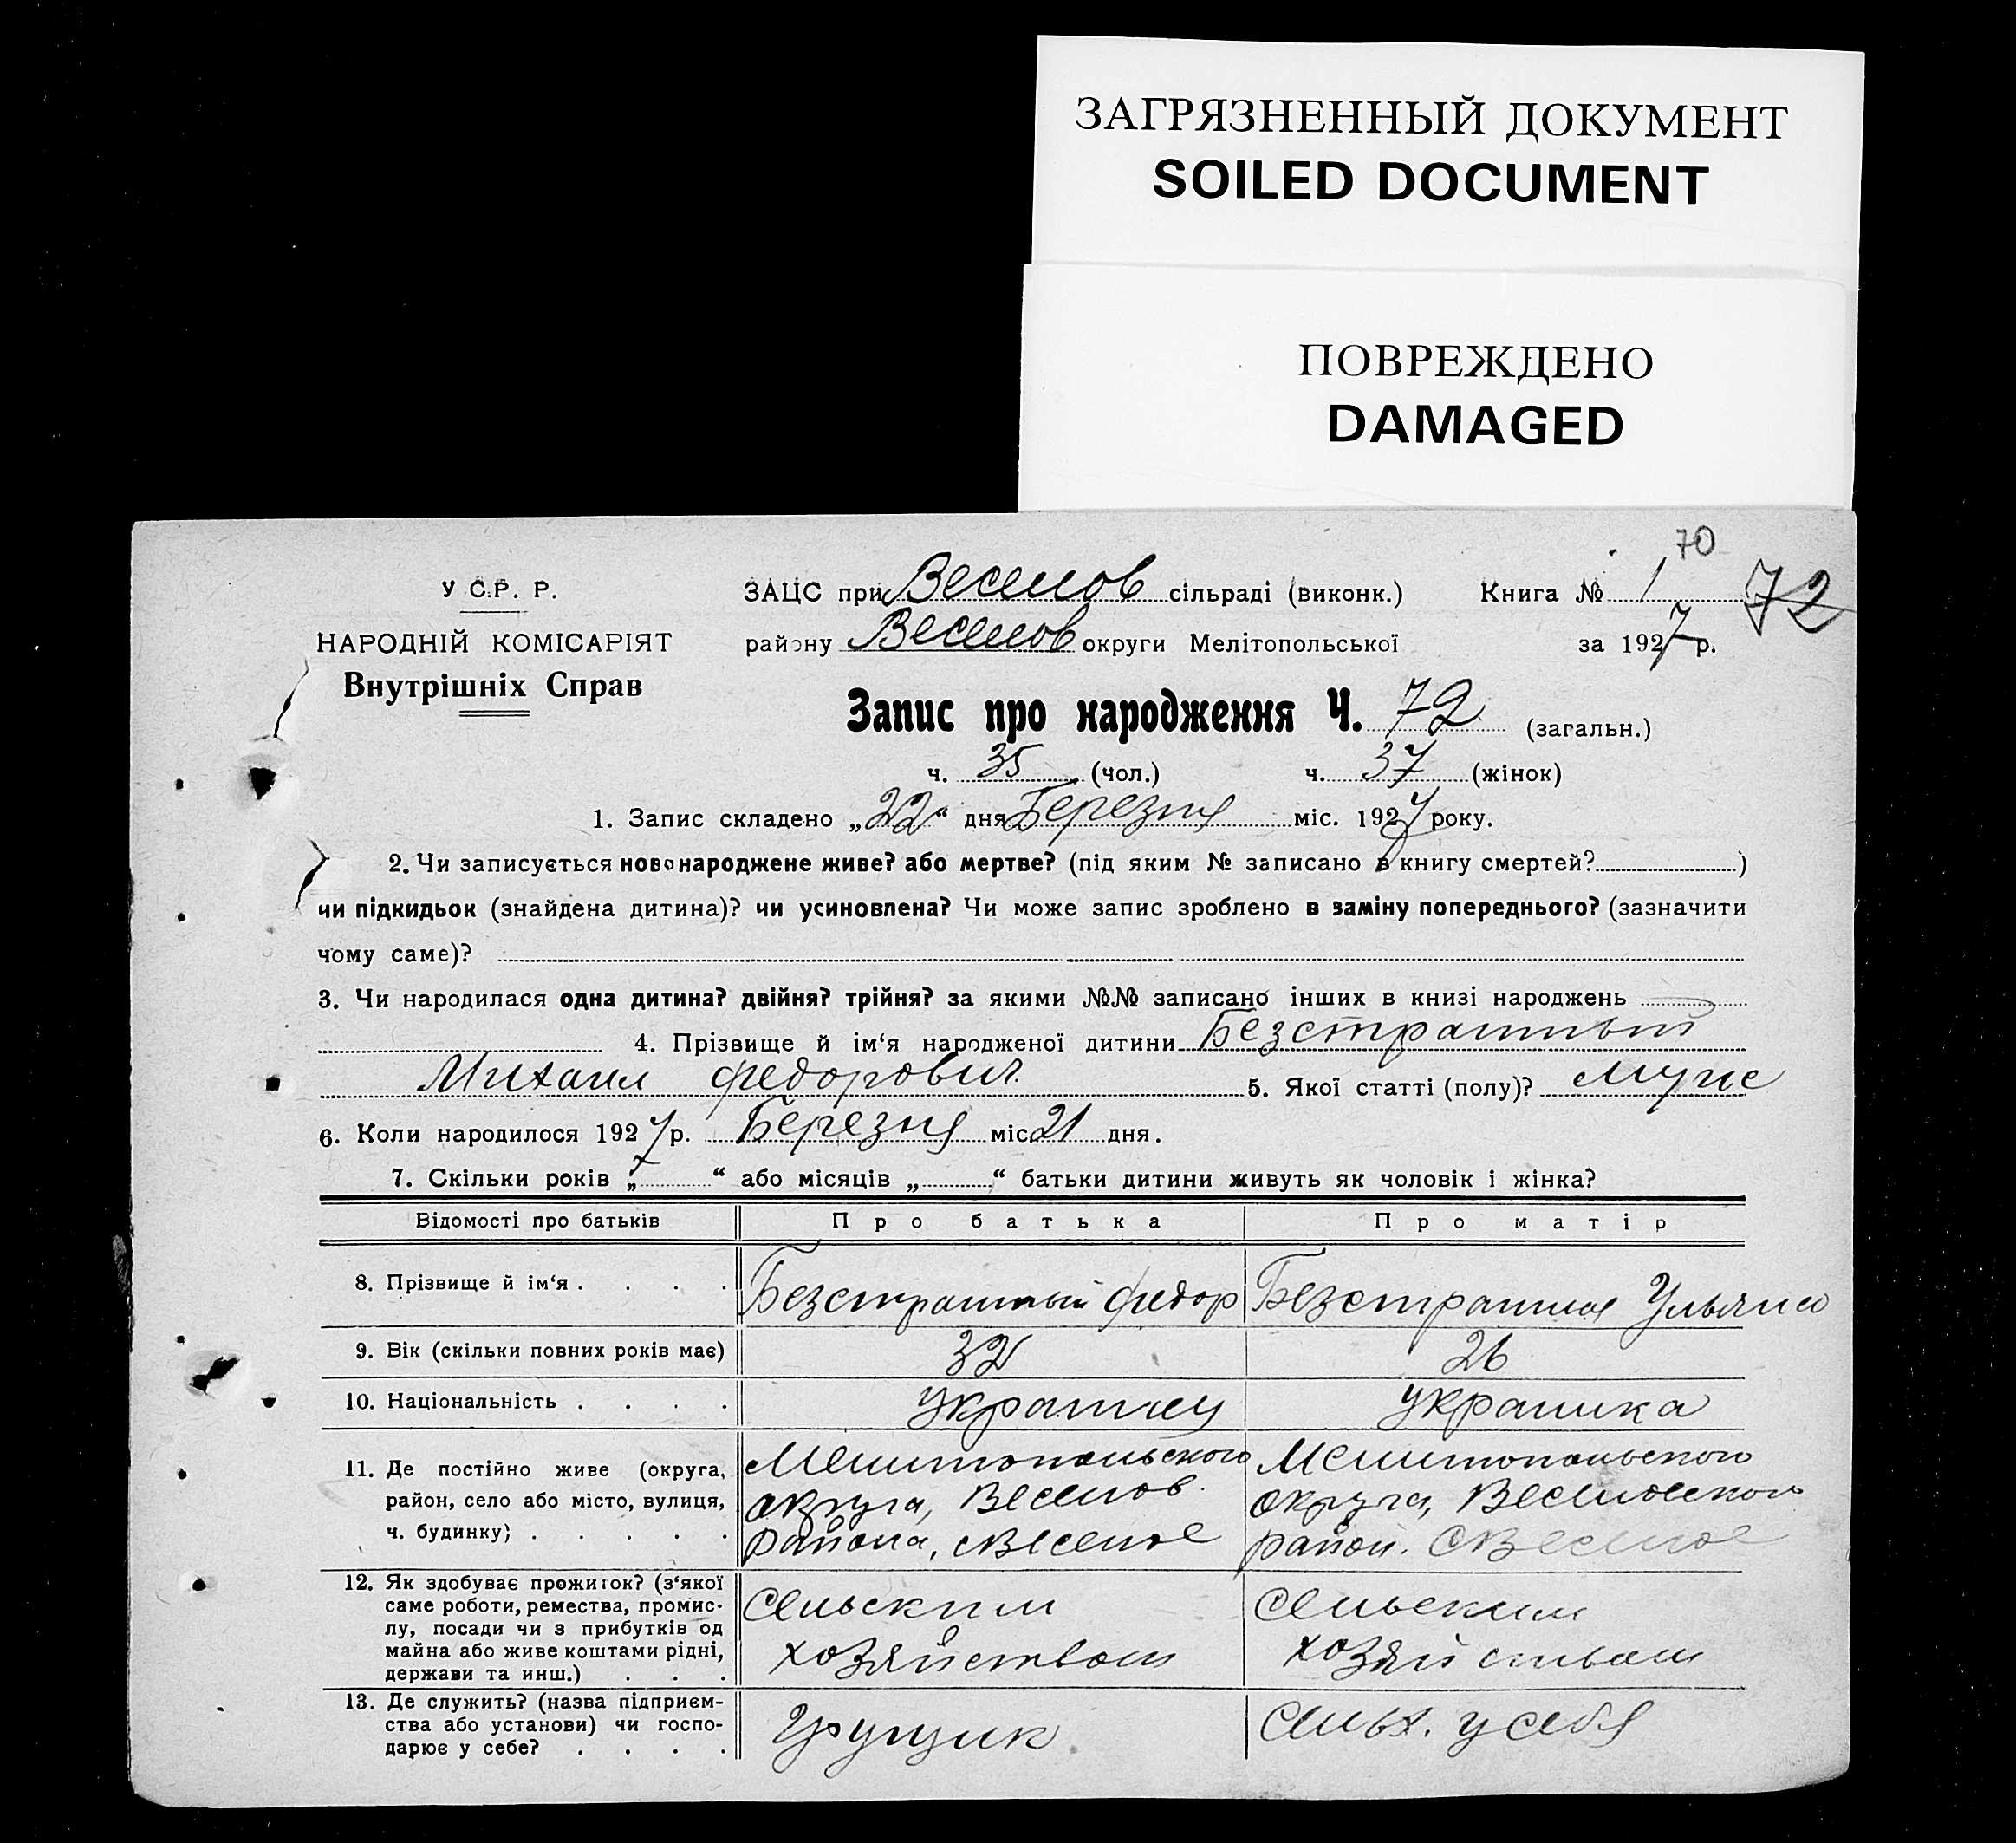 ЗАГРЯЗНЕННЫЙ ДОКУМЕНТ
SOILED DOCUMENT
ПОВРЕЖДЕНО
DAMAGED
70
У С.Р. Р.
ЗАЦС при Веселов сільраді (виконк.) Книга № 1 72
НАРОДНІЙ КОМІСАРІЯТ
району Веселов округи Мелітопольської за 1927 р.
Внутрішніх Справ
Запис про народження Ч. 72 (загальн.)
ч. 35 (чол.) ч. 37 (жінок)
1. Запис складено „22“ дня Березня міс. 1927 року.
2. Чи записується новонароджене живе? або мертве? (під яким № записано в книгу смертей? )
чи підкидьок (знайдена дитина)? чи усиновлена? Чи може запис зроблено в заміну попереднього? (зазначити
чому саме)?
3. Чи народилася одна дитина? двійня? трійня? за якими №№ записано інших в книзі народжень
4. Прізвище й ім‘я народженої дитини Безстрашный
Михаил Федорович 5. Якої статті (полу)? муж
6. Коли народилося 1927 р. Березня міс 21 дня.
7. Скільки років „ “ або місяців „ “ батьки дитини живуть як чоловік і жінка?
Відомості про батьків Про батька Про матір
8. Прізвище й ім‘я . . . . Безстрашный Федор Безстрашная Ульяна
9. Вік (скільки повних років має) 32 26
10. Національність . . . . украинец украинка
11. Де постійно живе (округа, Мелитопольского Мелитопольского
район, село або місто, вулиця, округа, Веселов. округа, Веселовского
ч. будинку) . . . . . района, с Веселое район. С Веселое
12. Як здобуває прожиток? (з‘якої
саме роботи, ремества, промис- Сельским Сельским
лу, посади чи з прибутків од
майна або живе коштами рідні, хозяйством хозяйством
держави та инш.) . . .
13. Де служить? (назва підприєм-
ства або установи) чи госпо- у себя
дарює у себе? . . . .